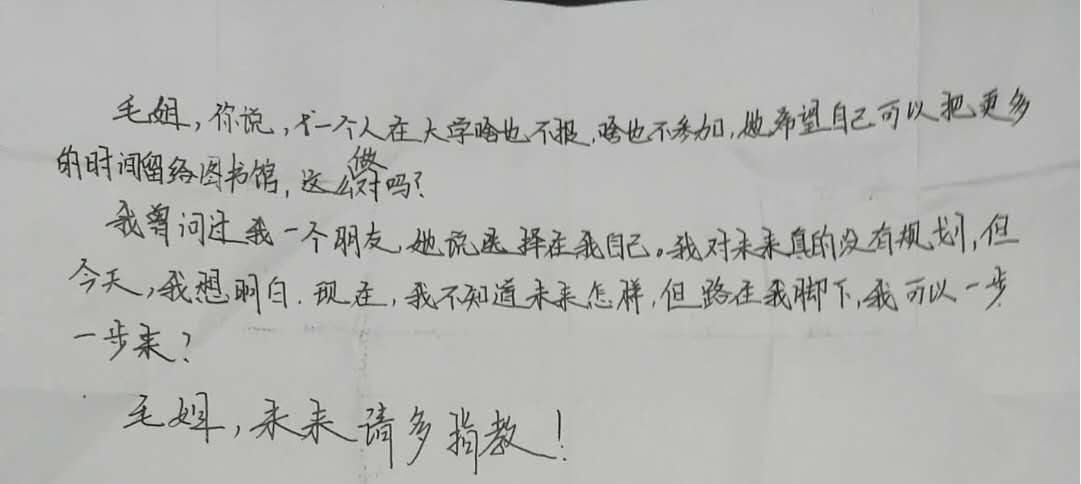 毛姐,你说,一个人在大学啥也不报,啥也不参加,她希望自己可以把更多
的时间留给图书馆,这么做对吗?
我曾问过我一个朋友,她说选择在我自己。我对未来真的没有规划,但
今天,我想明白.现在,我不知道未来怎样,但路在我脚下,我可以一步
一步来?
毛姐,未来请多指教!